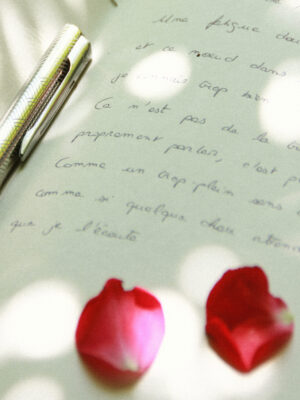 Une fatigue dou
et ce nœud dans
je connais trop bien
Ce n'est pas de la
proprement parler, c'est p
Comme un trop-plein sans
comme si quelque chose attend
que je l'écoute.